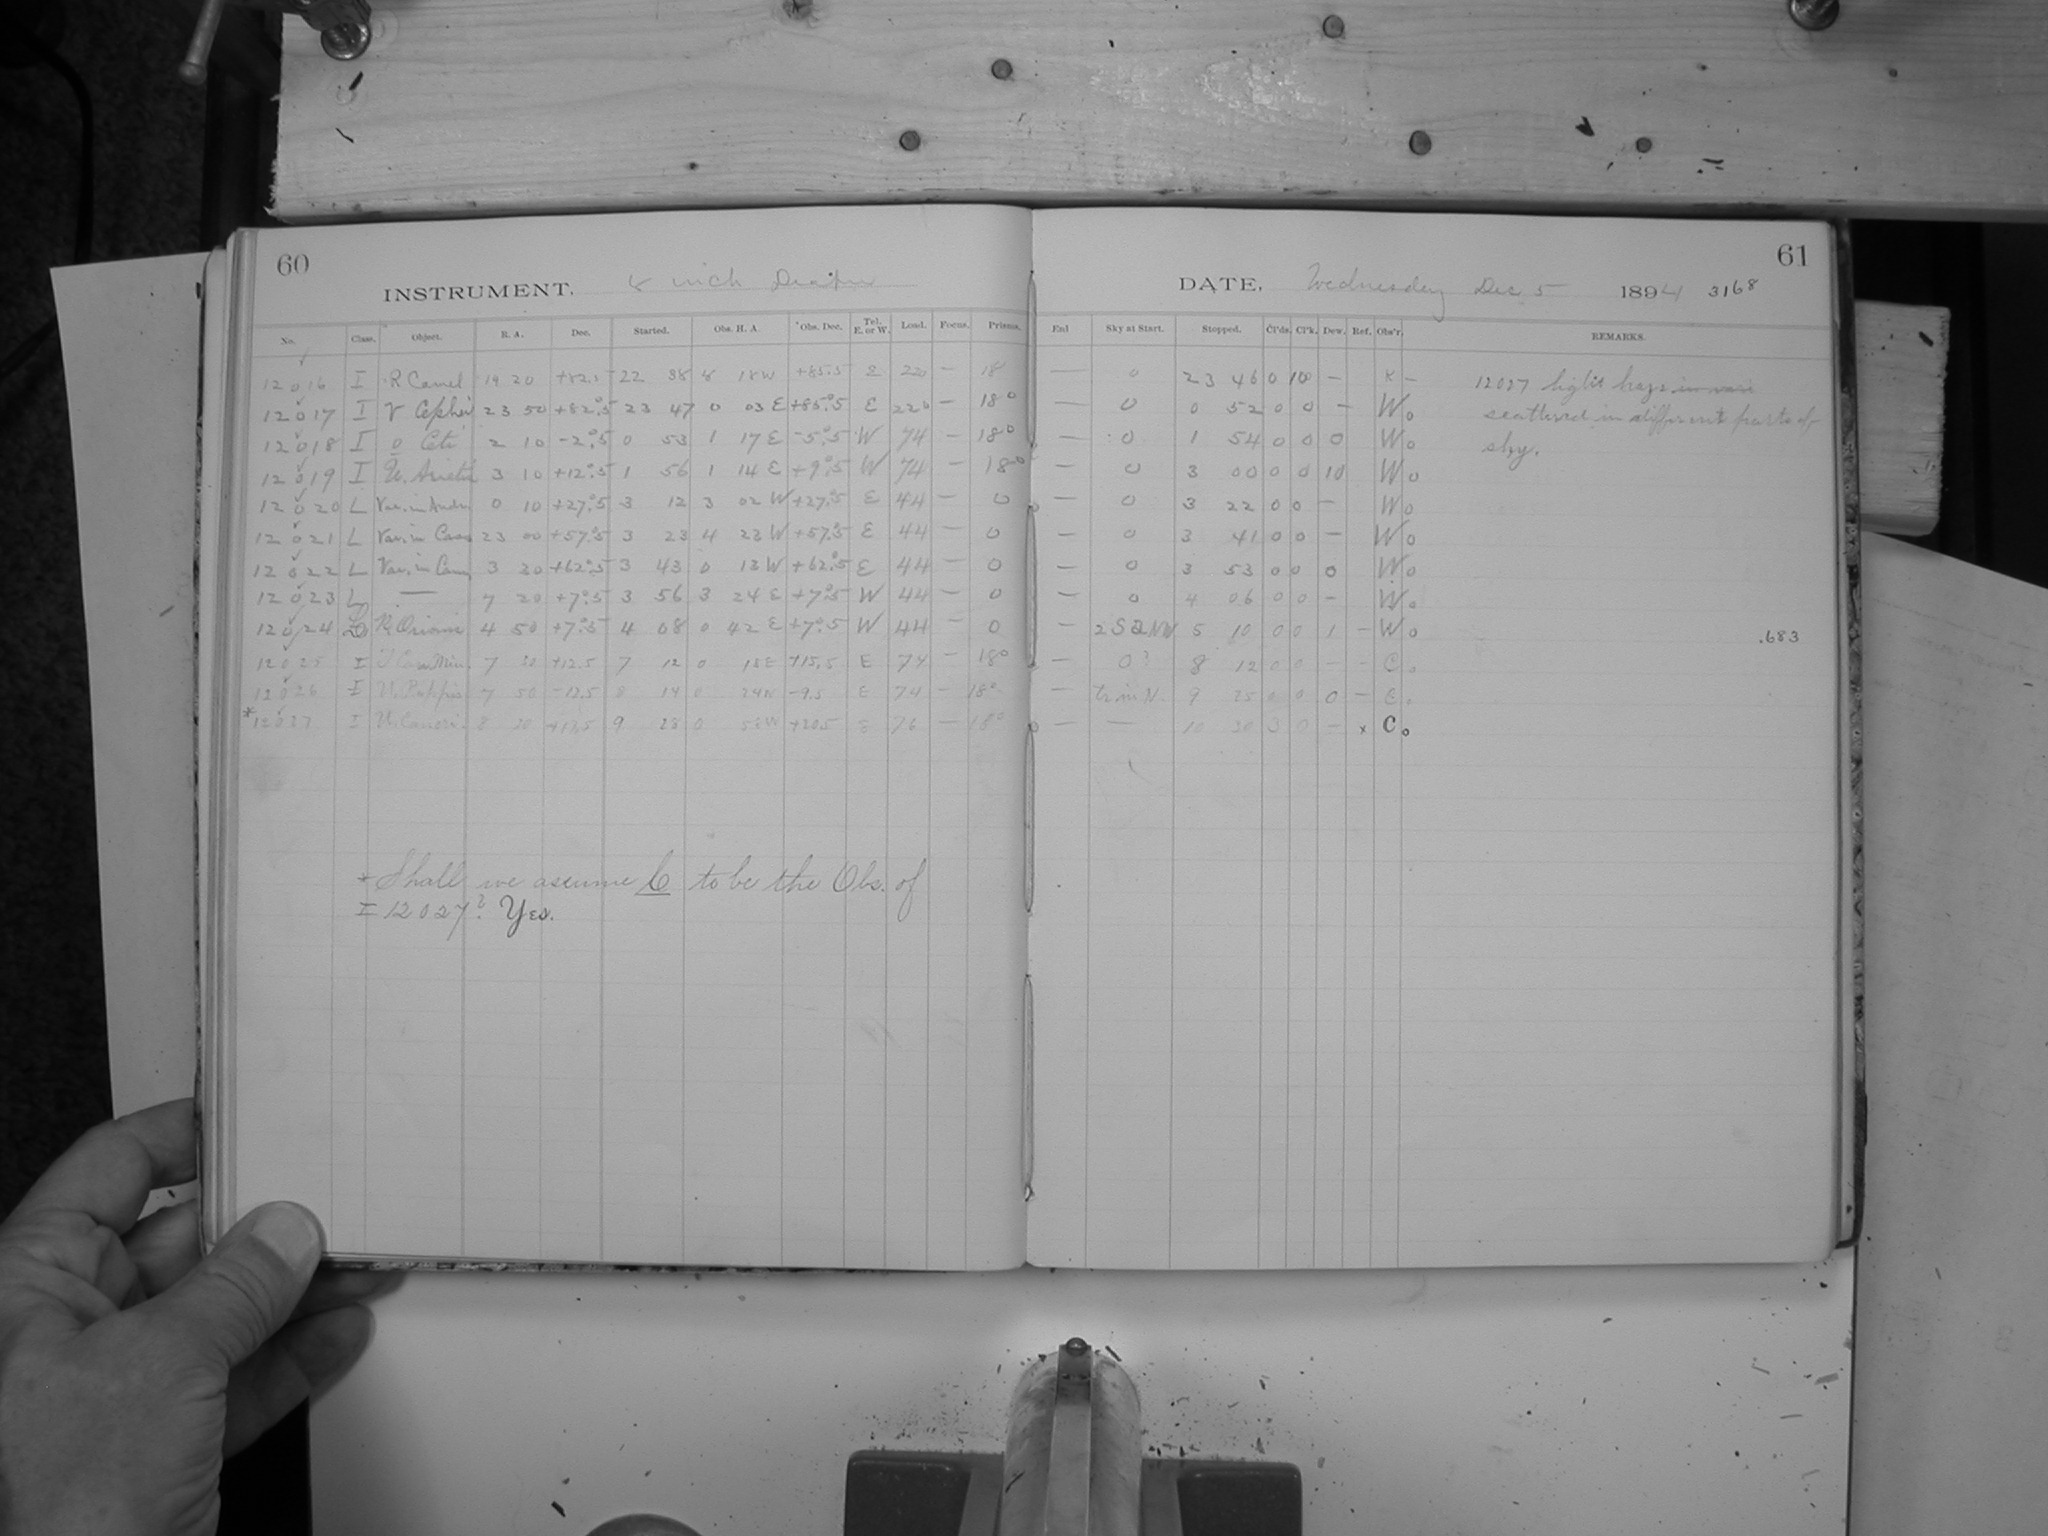 60
INSTRUMENT. 8 inch
No. Class. Object. R. A. Dec. Started. Obs. H. A. Obs. Dec. Tel. E. or W. Load. Focus. Prisms.
12016 I R Camel 19 20 +82.5 22 38 8 18W +85.5 E 220 — 18
12017 I V Cephei 23 50 +82°.5 23 47 0 03 E +85°.5 E 220 — 18°
12018 I o Ceti 2 10 -2°.5 0 53 1 17 E -5°.5 W 74 — 18°
12019 I U. Arietis 3 10 +12°.5 1 56 1 14 E +9°.5 W 74 — 18°
12020 L Var. in Andr 0 10 +27°.5 3 12 3 02 W +27°.5 E 44 — 0
12021 L Var. in Cass 23 00 +57°.5 3 23 4 23 W +57°.5 E 44 — 0
12022 L Var. in Cam 3 30 +62°.5 3 43 0 13 W +62°.5 E 44 — 0
12023 L — 7 20 +7°.5 3 56 3 24 E +7°.5 W 44 — 0
12024 R. Orionis 4 50 +7°.5 4 08 0 42 E +7°.5 W 44 — 0
12025 I Can. Min. 7 +12.5 7 12 0 18E +15.5 E 74 — 18°
12026 I U. Puppis 7 50 -12.5 8 14 0 24W -9.5 E 74 — 18°
*12027 I U. Cancri 8 20 9 28 0 +20.5 E 76 — 18°
* Shall we assume C to be the Obs. of
I 12027? Yes.
61
DATE, Wednesday Dec 5 1894 3168
End Sky at Start. Stopped. Cl'ds. Cl'k. Dew. Ref. Obs'r. REMARKS.
— 0 23 46 0 10 — K —
— 0 0 52 0 0 — W o
— 0 1 54 0 0 0 W o
— 0 3 00 0 0 10 W o
— 0 3 22 0 0 — W o
— 0 3 41 0 0 — W o
— 0 3 53 0 0 0 W o
— 0 4 06 0 0 — W o
— 2 S 2 NW 5 10 0 0 1 — W o .683
— 0? 8 12 0 0 — — C o
— in N. 9 25 0 0 0 — C o
— — 10 30 3 0 — x C o
12027 light haze in
scattered in different parts of
sky.